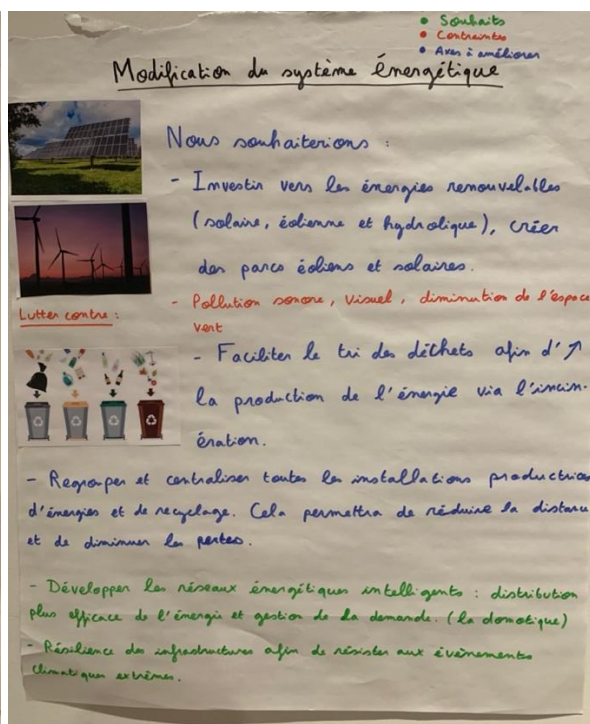 • Souhaits
• Contraintes
• Axes à améliorer
Modification du système énergétique
Nous souhaiterions :
- Investir vers les énergies renouvelables
(solaire, éolienne et hydrolique), créer
des parcs éoliens et solaires.
Lutter contre :
- Pollution sonore, visuel, diminution de l'espace
vert
- Faciliter le tri des déchets afin d'↗
la production de l'énergie via l'incin-
ération.
- Regrouper et centraliser toutes les installations productrices
d'énergies et de recyclage. Cela permettra de réduire la distance
et de diminuer les pertes.
- Développer les réseaux énergétiques intelligents : distribution
plus efficace de l'énergie et gestion de la demande. (la domotique)
- Résilience des infrastructures afin de résister aux évènements
climatiques extrêmes.